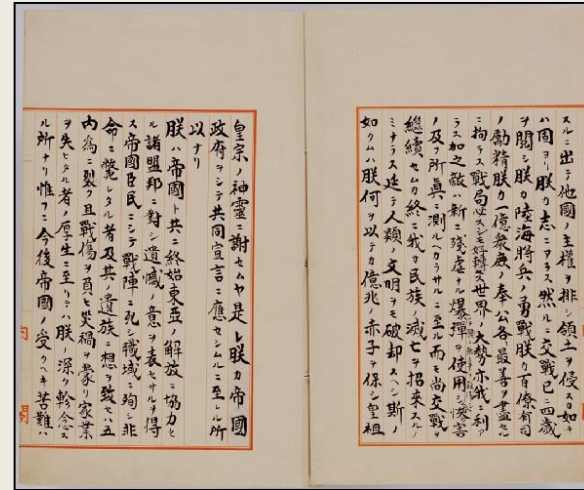 スルニ出テ他國ノ主權ヲ排シ領土ヲ侵スカ如キ
ハ固ヨリ朕カ志ニアラス然ルニ交戰已ニ四歳
ヲ閲シ朕カ陸海將兵ノ勇戰朕カ百僚有司
ノ勵精朕カ一億衆庶ノ奉公各最善ヲ盡セル
ニ拘ラス戰局必スシモ好轉セス世界ノ大勢亦我ニ利ア
ラス加之敵ハ新ニ殘虐ナル爆彈ヲ使用シ慘害
ノ及フ所眞ニ測ルヘカラサルニ至ル而モ尚交戰ヲ
繼續セムカ終ニ我カ民族ノ滅亡ヲ招來スルノ
ミナラス延テ人類ノ文明ヲモ破却スヘシ斯ノ
如クムハ朕何ヲ以テカ億兆ノ赤子ヲ保シ皇祖
皇宗ノ神靈ニ謝セムヤ是レ朕カ帝國
政府ヲシテ共同宣言ニ應セシムルニ至レル所
以ナリ
朕ハ帝國ト共ニ終始東亞ノ解放ニ協力セ
ル諸盟邦ニ對シ遺憾ノ意ヲ表セサルヲ得
ス帝國臣民ニシテ戰陣ニ死シ職域ニ殉シ非
命ニ斃レタル者及其ノ遺族ニ想ヲ致セハ五
内爲ニ裂ク且戰傷ヲ負ヒ災禍ヲ蒙リ家業
ヲ失ヒタル者ノ厚生ニ至リテハ朕ノ深ク軫念ス
ル所ナリ惟フニ今後帝國ノ受クヘキ苦難ハ